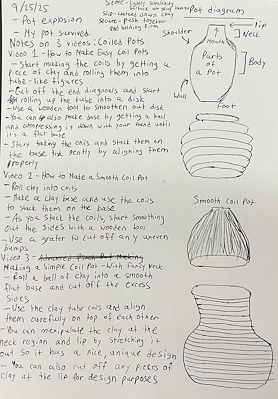 9/25/25
- Pot explosion
- My pot survived
Score - lightly scratching
Slip - watered down clay
Secure - push together and holding firm
Pot diagram
Lip
Neck
Shoulder
Mouth
Parts of a Pot
Body
Wall
Foot
Notes on 3 videos: Coiled Pots
Video 1 - How to Make Easy Coil Pots
- Start making the coils by getting a
piece of clay and rolling them into
tube-like figures
- Cut off the end diagonals and start
rolling up the tube into a disk
- Use a wooden tool to smoothen out disk
- You can also make base by getting a ball
and compressing it down with your hand until
it's a flat base
- Start taking the coils and stack them on
the base tub gently by aligning them
properly
Video 2 - How to Make a Smooth Coil Pot
- Roll clay into coils
- Make a clay base and use the coils
to stack them on the base
- As you stack the coils, start smoothing
out the sides with a wooden tool
- Use a grater to cut off any uneven
bumps
Smooth Coil Pot
Video 3 - Advanced Pinch Pot Making
Making a Simple Coil Pot - With Fancy Neck
- Roll a ball of clay into a smooth
flat base and cut off the excess
sides
- Use the clay tube coils and align
them carefully on top of each other
- You can manipulate the clay at the
neck region and lip by stretching it
out so it has a nice, unique design
- You can also cut off any pieces of
clay at the lip for design purposes